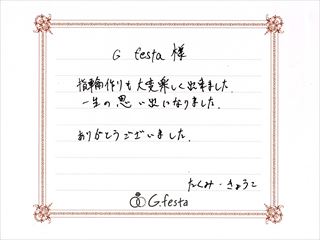 G festa 様
指輪作りも大変楽しく出来ました。
一生の思い出になりました。
ありがとうございました。
たくみ・きょうこ
G.festa